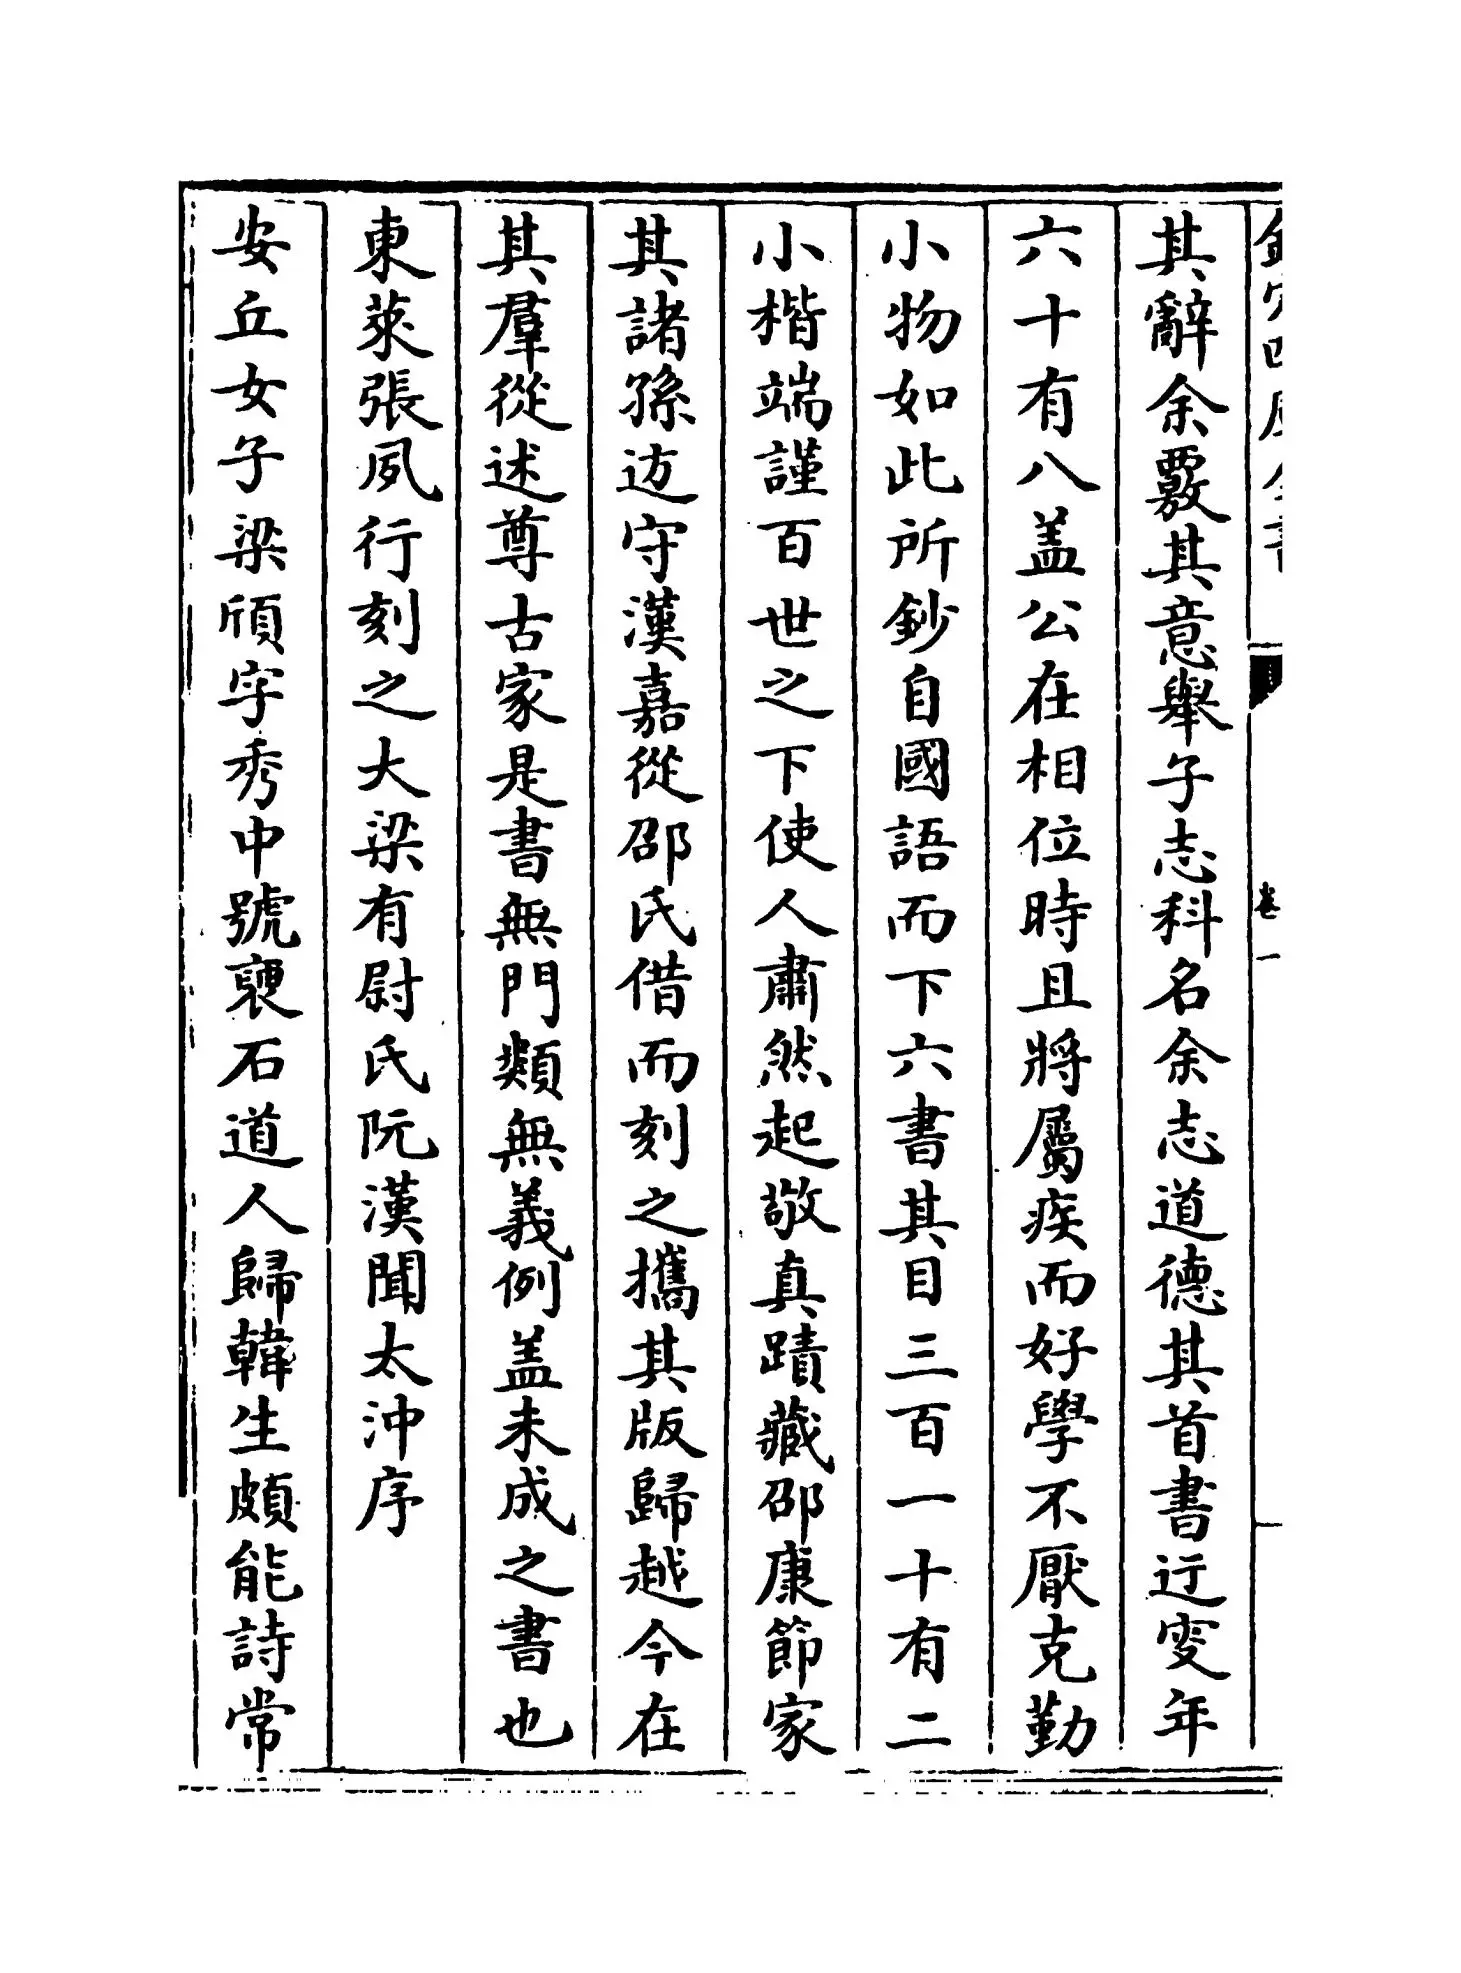 欽定四庫全書
卷一
其辭余覈其意舉子志科名余志道德其首書迂叜年
六十有八盖公在相位時且將屬疾而好學不厭克勤
小物如此所鈔自國語而下六書其目三百一十有二
小楷端謹百世之下使人肅然起敬真蹟藏邵康節家
其諸孫迈守漢嘉從邵氏借而刻之攜其版歸越今在
其羣從述尊古家是書無門類無義例盖未成之書也
東萊張夙行刻之大梁有尉氏阮漢聞太沖序
安丘女子梁頎字秀中號褏石道人歸韓生頗能詩常